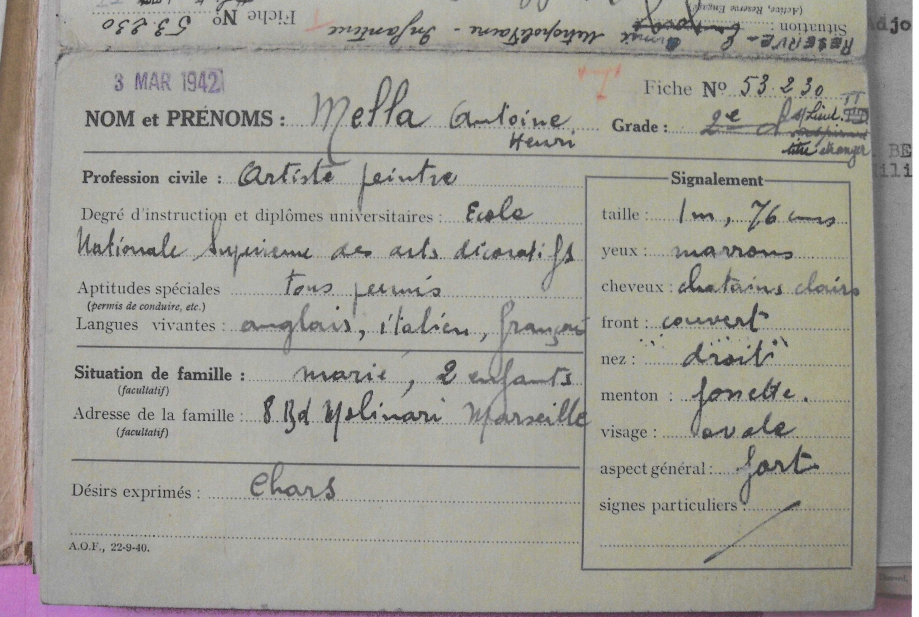 Fiche Nº 53230
Situation :
(Active, Réserve Engagé
RESERVE - Armée Métropolitaine - Infanterie
3 MAR 1942
Fiche Nº 53230
NOM et PRÉNOMS : Mella Antoine
Henri
Grade : 2e s/Lieut.
titre étranger
Profession civile : Artiste peintre
Degré d'instruction et diplômes universitaires : Ecole
Nationale Supérieure des arts décoratifs
Aptitudes spéciales tous permis
(permis de conduire, etc.)
Langues vivantes : anglais, italien, français
Situation de famille : marié, 2 enfants
(facultatif)
Adresse de la famille : 8 Bd Molinari Marseille
(facultatif)
Désirs exprimés : Chars
A.O.F., 22-9-40.
Signalement
taille : 1m, 76 cms
yeux : marrons
cheveux : chatains clairs
front : couvert
nez : droit
menton : fossette.
visage : ovale
aspect général : fort
signes particuliers : /
Adjo
BE
ili